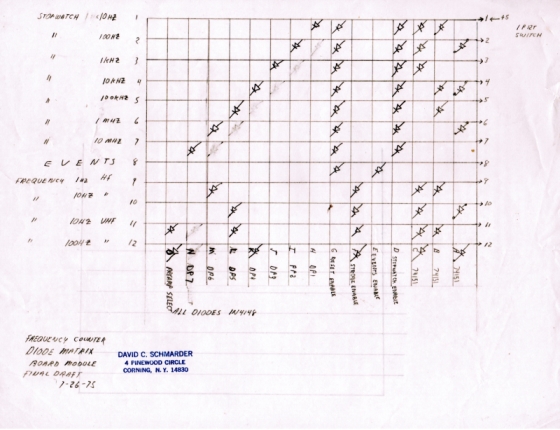 STOPWATCH 10HZ 1 1 +5
" 100HZ 2 2 1 PRT SWITCH
" 1KHZ 3 3
" 10KHZ 4 4
" 100KHZ 5 5
" 1 MHZ 6 6
" 10 MHZ 7 7
EVENTS 8 8
FREQUENCY 1HZ HF 9 9
" 10HZ " 10 10
" 10HZ UHF 11 11
" 100HZ " 12 12
N DP7
M DP6
L DP5
K DP4
J DP3
I DP2
H DP1
G RESET ENABLE
F STROBE ENABLE
E EVENTS ENABLE
D STOPWATCH ENABLE
C 74151
B 74151
A 74151
ALL DIODES IN4148
FREQUENCY COUNTER
DIODE MATRIX
BOARD MODULE
FINAL DRAFT
1-26-75
DAVID C. SCHMARDER
4 FIREWOOD CIRCLE
CORNING, N.Y. 14830